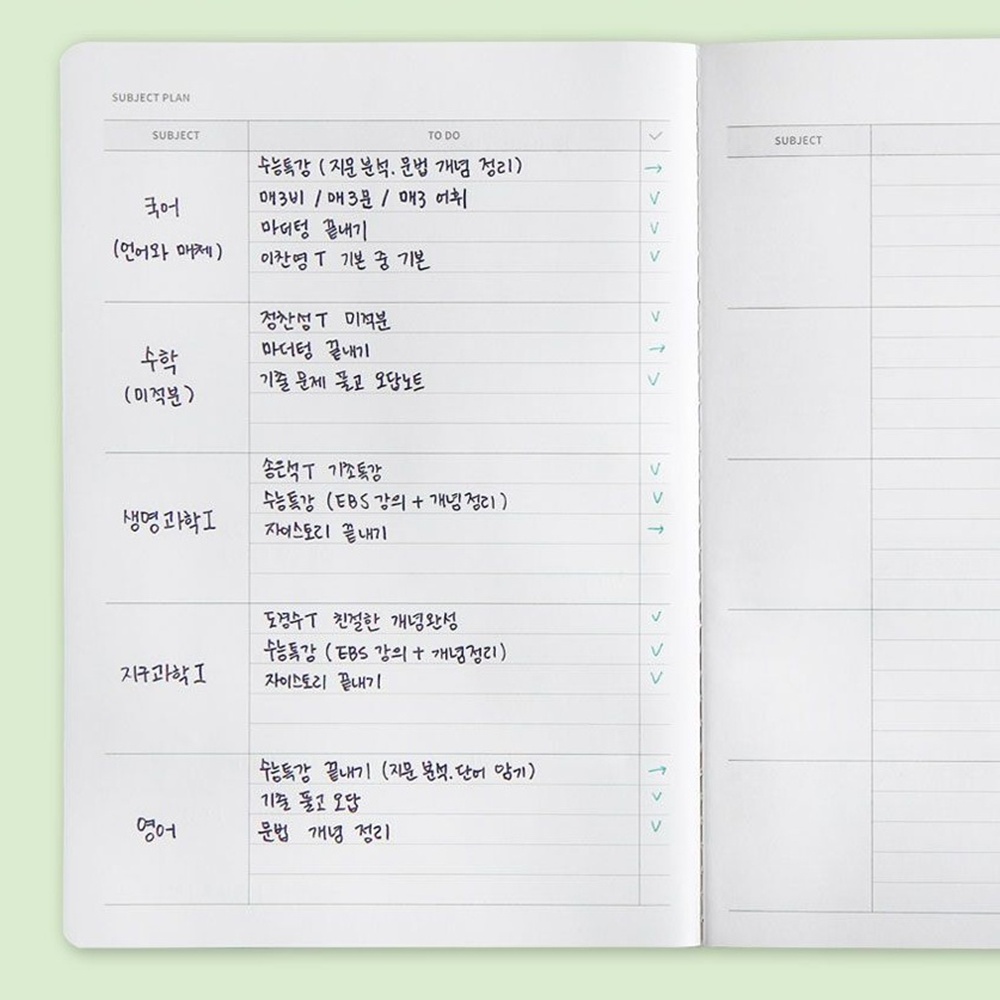 SUBJECT PLAN
SUBJECT TO DO ✓
수능특강 (지문 분석. 문법 개념 정리) →
국어
매3비 / 매3문 / 매3 어휘 ✓
마더텅 끝내기 ✓
(언어와 매체)
이찬영 T 기본 중 기본 ✓
정찬성 T 미적분 ✓
수학
마더텅 끝내기 →
(미적분)
기출 문제 풀고 오답노트 ✓
송은석 T 기초특강 ✓
수능특강 (EBS 강의 + 개념정리) ✓
생명과학 I
자이스토리 끝내기 →
도경수 T 친절한 개념완성 ✓
수능특강 (EBS 강의 + 개념정리) ✓
지구과학 I
자이스토리 끝내기 ✓
수능특강 끝내기 (지문 분석. 단어 암기) →
기출 풀고 오답 ✓
영어
문법 개념 정리 ✓
SUBJECT